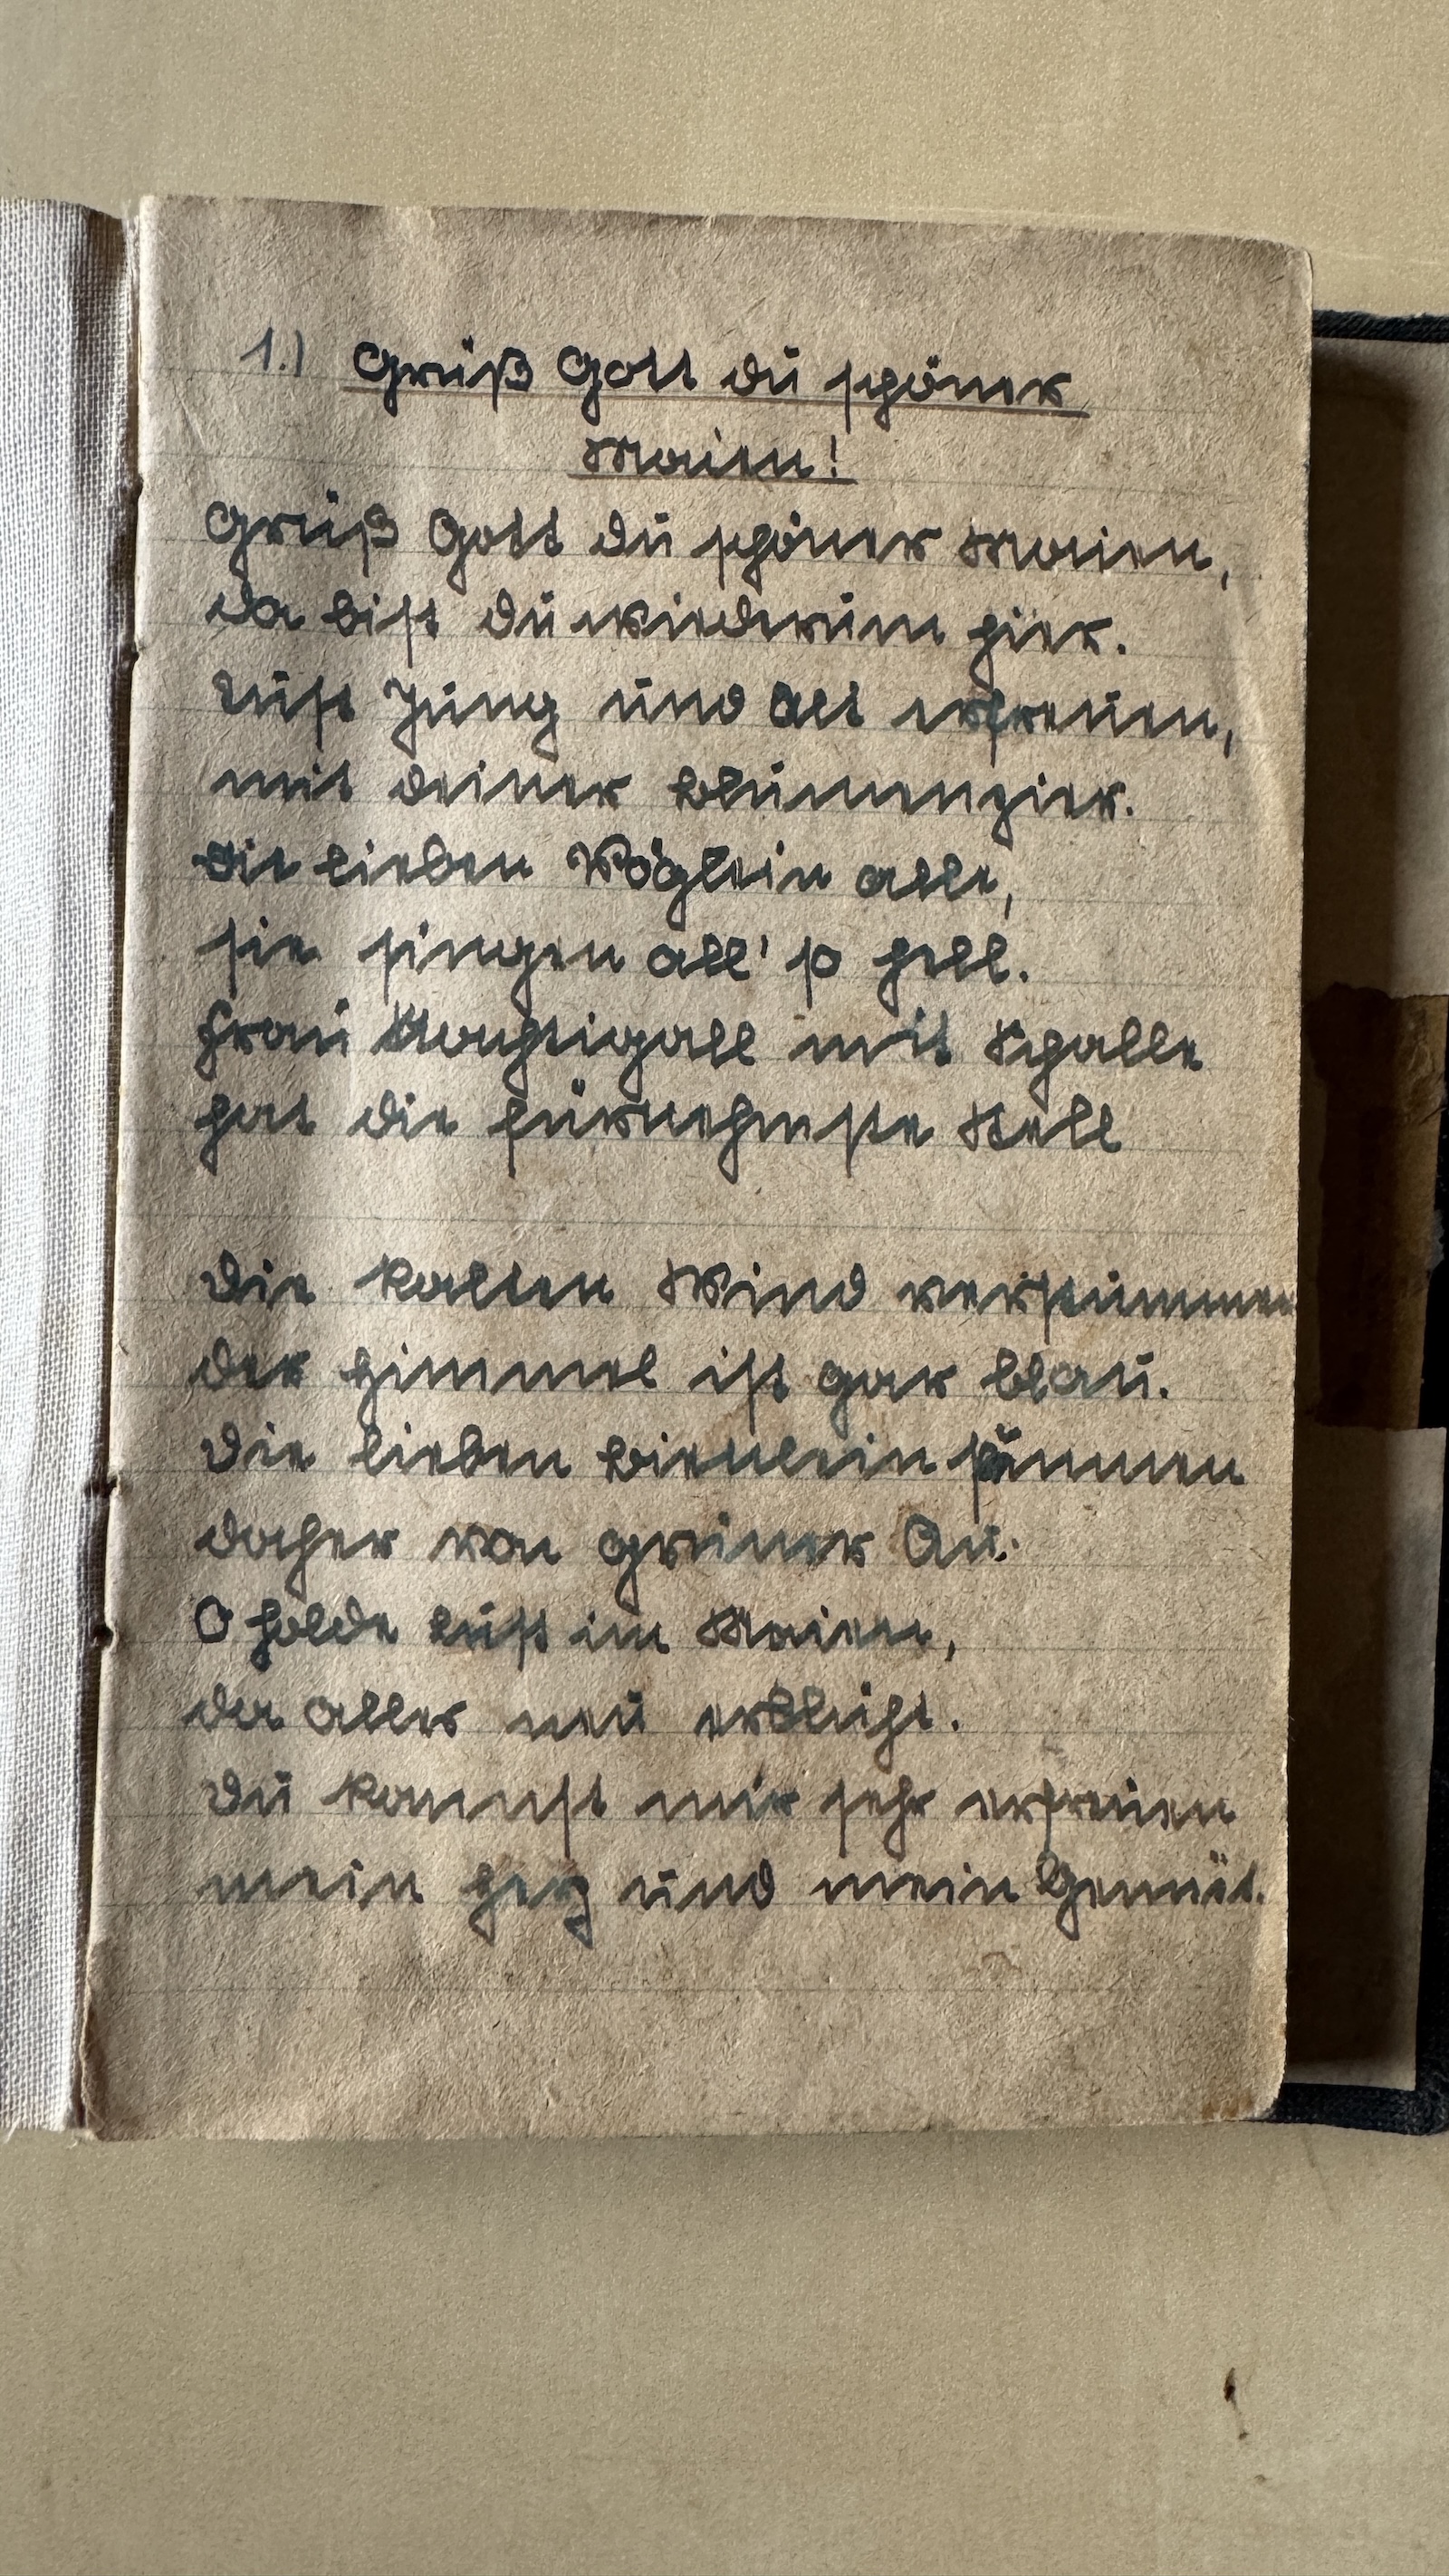 1.) Grüß Gott du schöner
Maien!
Grüß Gott du schöner Maien,
da bist du wiederum hier.
Tust Jung und Alt erfreuen,
mit deiner Blumenzier.
Die lieben Vöglein alle,
sie singen all' so hell.
Frau Nachtigall mit Schalle
hat die fürnehmste Stell
Die kalten Wind verstummen
der Himmel ist gar blau.
Die lieben Bienlein summen
daher von grüner Au.
O holde Lust im Maien,
da alles neu erblüht.
Du kannst mir sehr erfreuen
mein Herz und mein Gemüt.